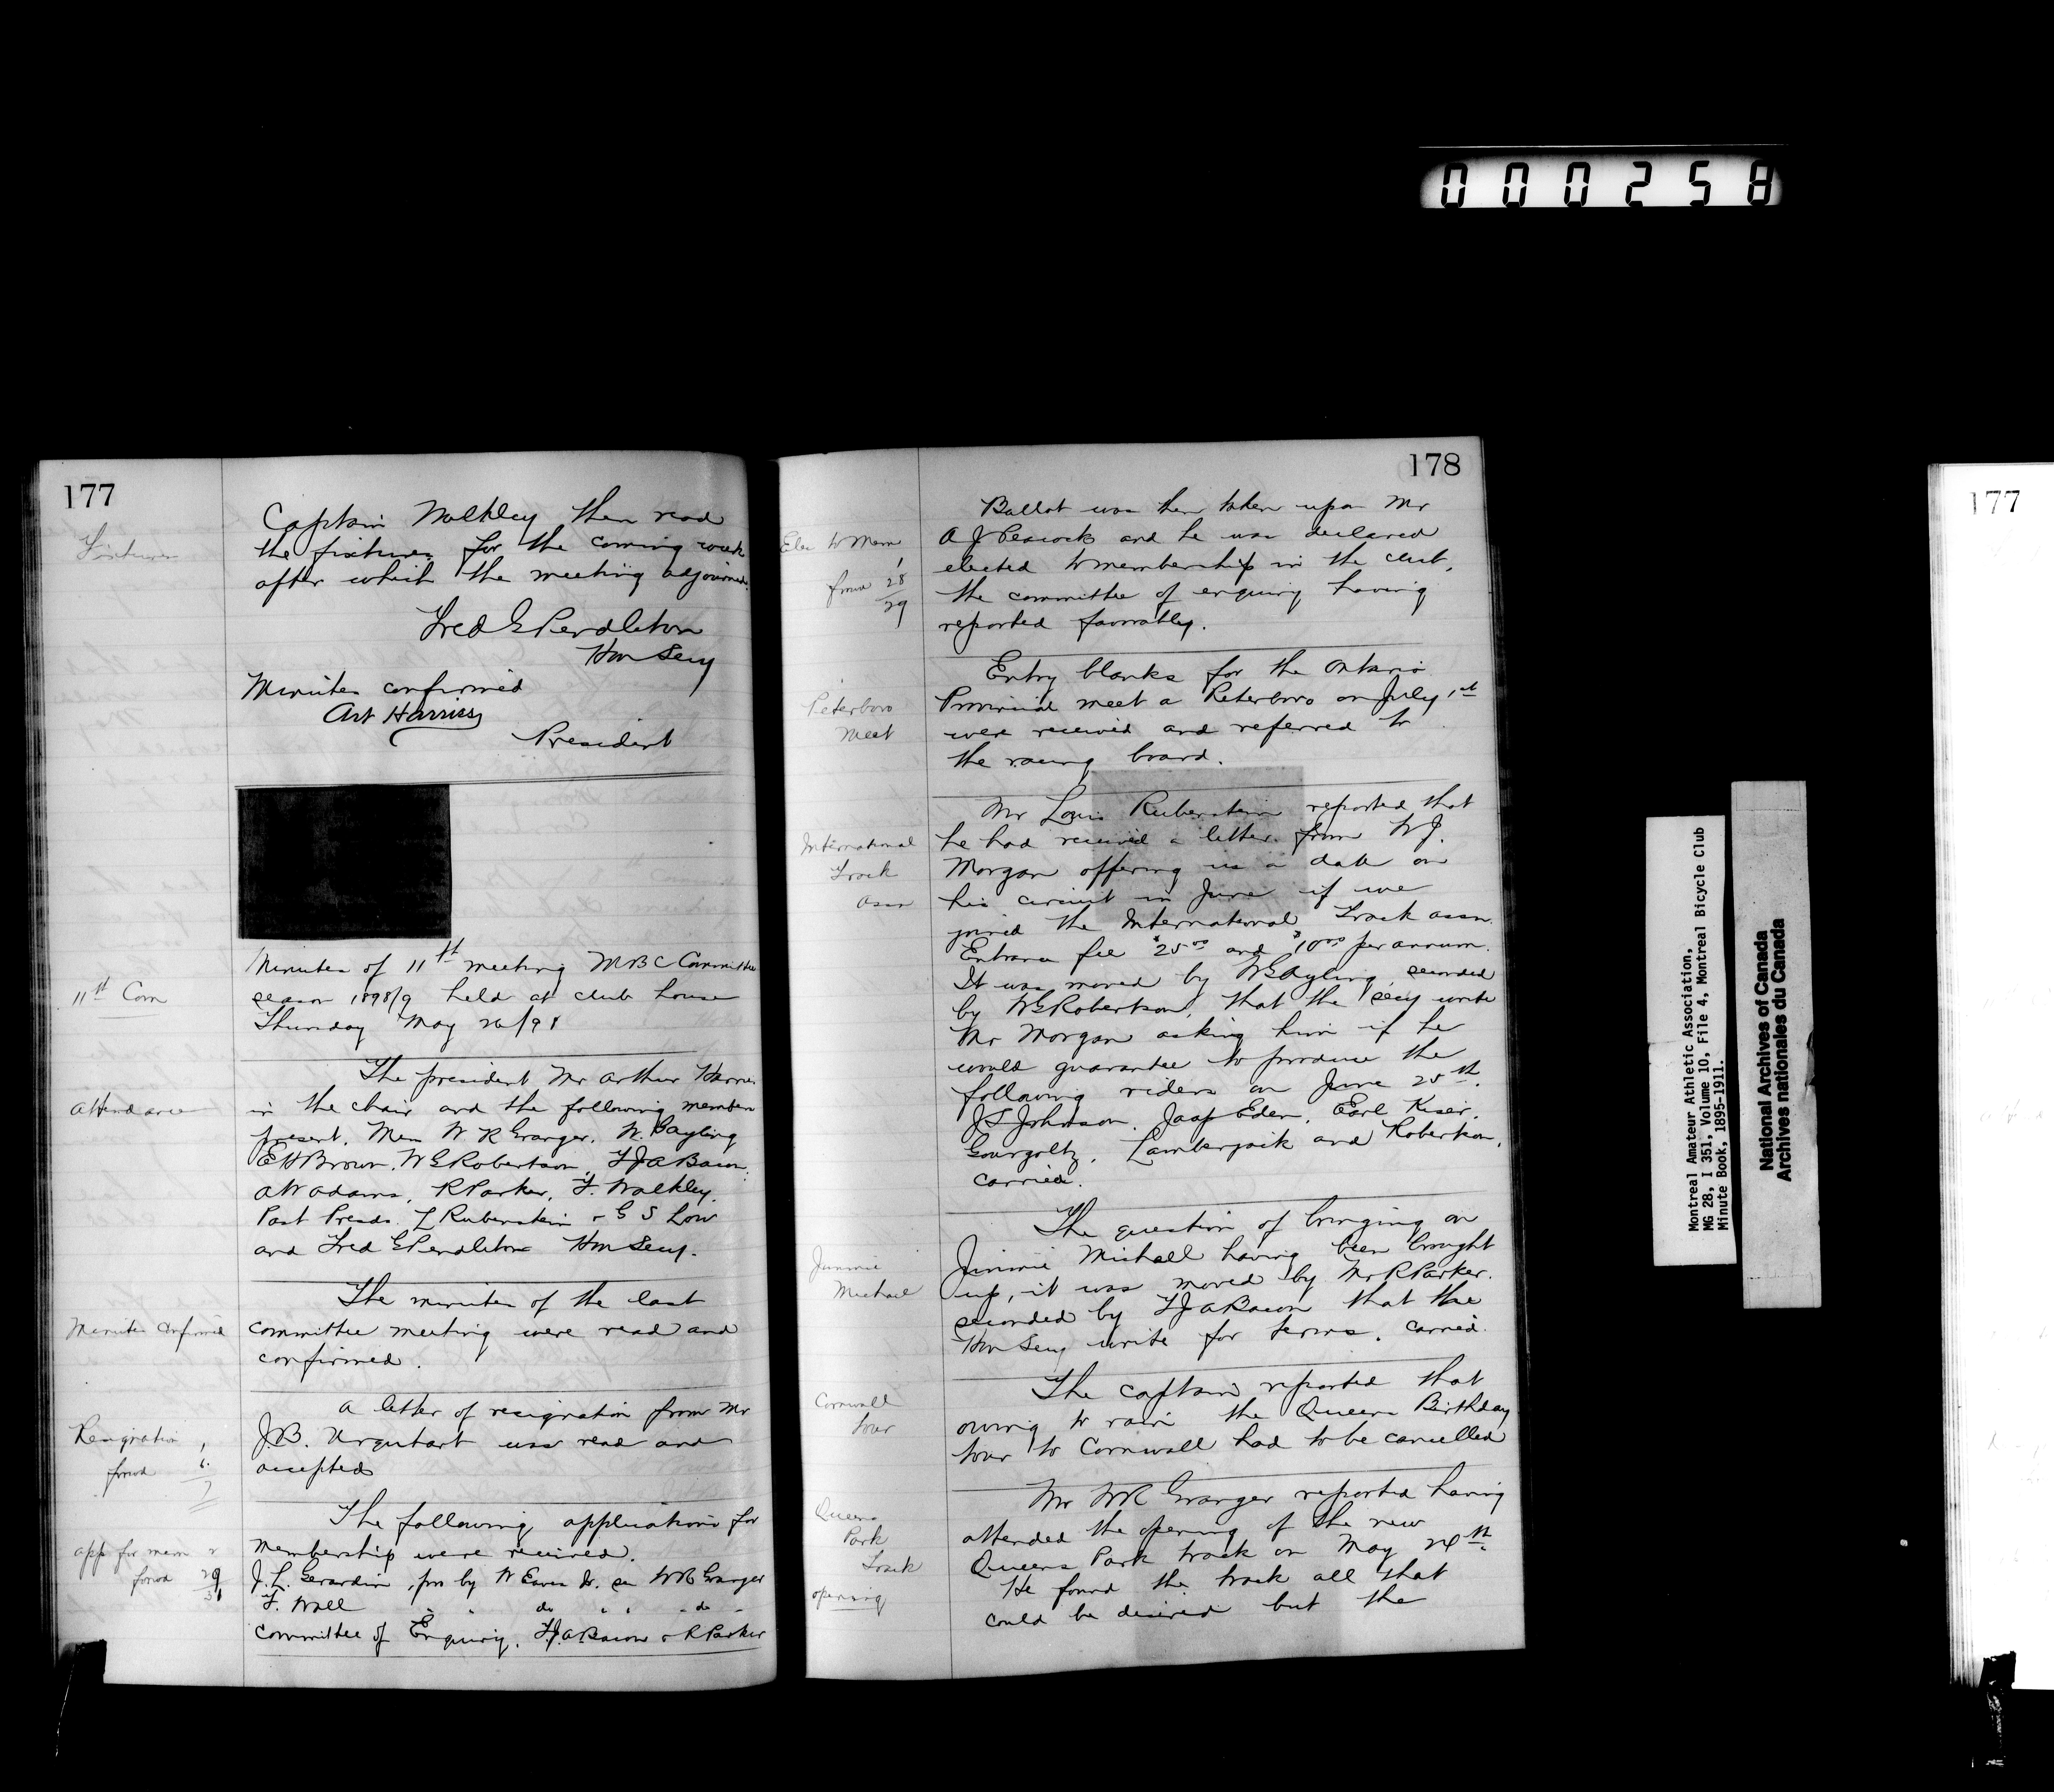 000258
177
Fixtures
Captain Walkley then read
the fixtures for the coming week
after which the meeting adjourned.
Fred G Pendleton
Hon Secy
Minutes confirmed
Art Harriss
President
11th Com
Minutes of 11th meeting MBC Committee
season 1898/9 held at club house
Thursday May 26/98
Attendance
The president Mr Arthur Harries
in the chair and the following members
present. Mess W R Granger. W. G Ayling
E H Brown. W G Robertson. F J A Bacon.
A W Adams, R Parker, F. Walkley.
Past Presds. L Rubenstein & G S Low
and Fred G Pendleton Hon Secy.
Minutes Confirmed
The minutes of the last
committee meeting were read and
confirmed.
Resignation 1
forwd 6
7
A letter of resignation from Mr
J.B. Urquhart was read and
accepted
app for mem 2
forwd 29
31
The following applications for
membership were received.
J. L. Gerardin, pro by W Eaves Jr. sec W R Granger
F. Wall " " do " " do
Committee of Enquiry. F.J.A Bacon & R Parker
178
Elec to Mem
1
forwd 28
29
Ballot was then taken upon Mr
A J Peacock and he was declared
elected to membership in the club,
the committee of enquiry having
reported favorably.
Peterboro
Meet
Entry blanks for the Ontario
Provincial meet a Peterboro on July 1st
were received and referred to
the racing board.
International
Track
assn
Mr Louis Rubenstein reported that
he had received a letter from W J.
Morgan offering us a date on
his circuit in June if we
joined the International Track assn.
Entrance fee $25.00 and $10.00 per annum.
It was moved by W G Ayling, seconded
by W G Robertson, that the secy write
Mr Morgan asking him if he
would guarantee to produce the
following riders on June 25th.
J S Johnson, Jaap Eden, Earl Kiser,
Gourgoltz, Lamberjack and Robertson,
carried.
Jimmie
Michael
The question of bringing on
Jimmie Michael having been brought
up, it was moved by Mr R Parker.
seconded by F J A Bacon that the
Hon Secy write for terms. carried.
Cornwall
tour
The captain reported that
owing to rain the Queens Birthday
tour to Cornwall had to be cancelled
Queens
Park
Track
opening
Mr W R Granger reported having
attended the opening of the new
Queens Park track on May 24th.
He found the track all that
could be desired but the
Montreal Amateur Athletic Association,
MG 28, I 351, Volume 10, File 4, Montreal Bicycle Club
Minute Book, 1895-1911.
National Archives of Canada
Archives nationales du Canada
177